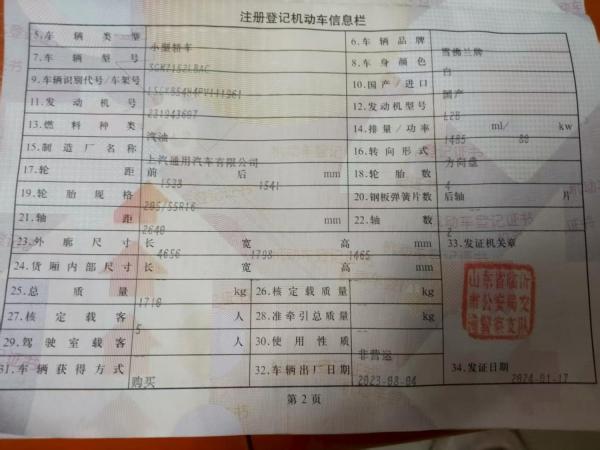 注册登记机动车信息栏
5.车辆类型 小型轿车 6.车辆品牌 雪佛兰牌
7.车辆型号 8.车身颜色 白
9.车辆识别代号/车架号 10.国产/进口 国产
11.发动机号 12.发动机型号 L2B
13.燃料种类 汽油 14.排量/功率 1485 ml/ kw
15.制造厂名称 上汽通用汽车有限公司 16.转向形式 方向盘
17.轮距 前 后 1541 mm 18.轮胎数 4
19.轮胎规格 205/55R16 20.钢板弹簧片数 后轴 片
21.轴距 2640 mm 22.轴数 2
23.外廓尺寸 长 4656 宽 1798 高 1465 mm 33.发证机关章
24.货厢内部尺寸 长 宽 高 mm
山东省临沂
市公安局交
通警察支队
25.总质量 1710 kg 26.核定载质量 -- kg
27.核定载客 5 人 28.准牵引总质量 -- kg
29.驾驶室载客 -- 人 30.使用性质 非营运
31.车辆获得方式 购买 32.车辆出厂日期 2023-08-04 34.发证日期 2024-01-17
第2页